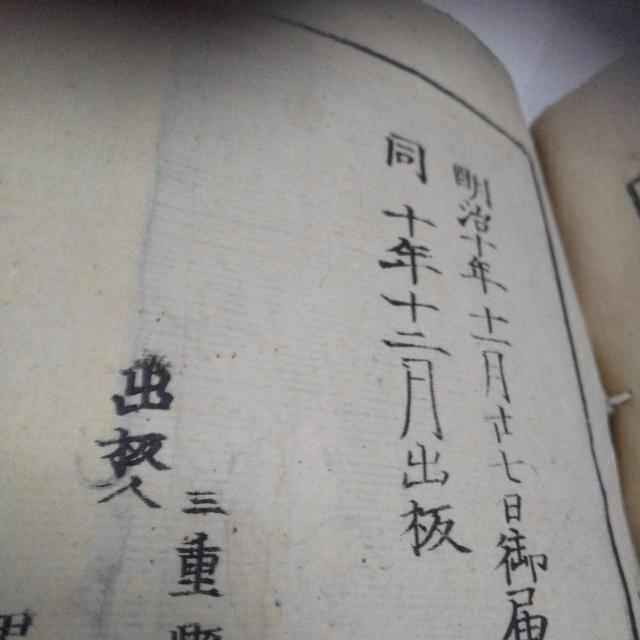 明治十年十一月廿七日御届
同十年十二月出板
出板人
三重縣